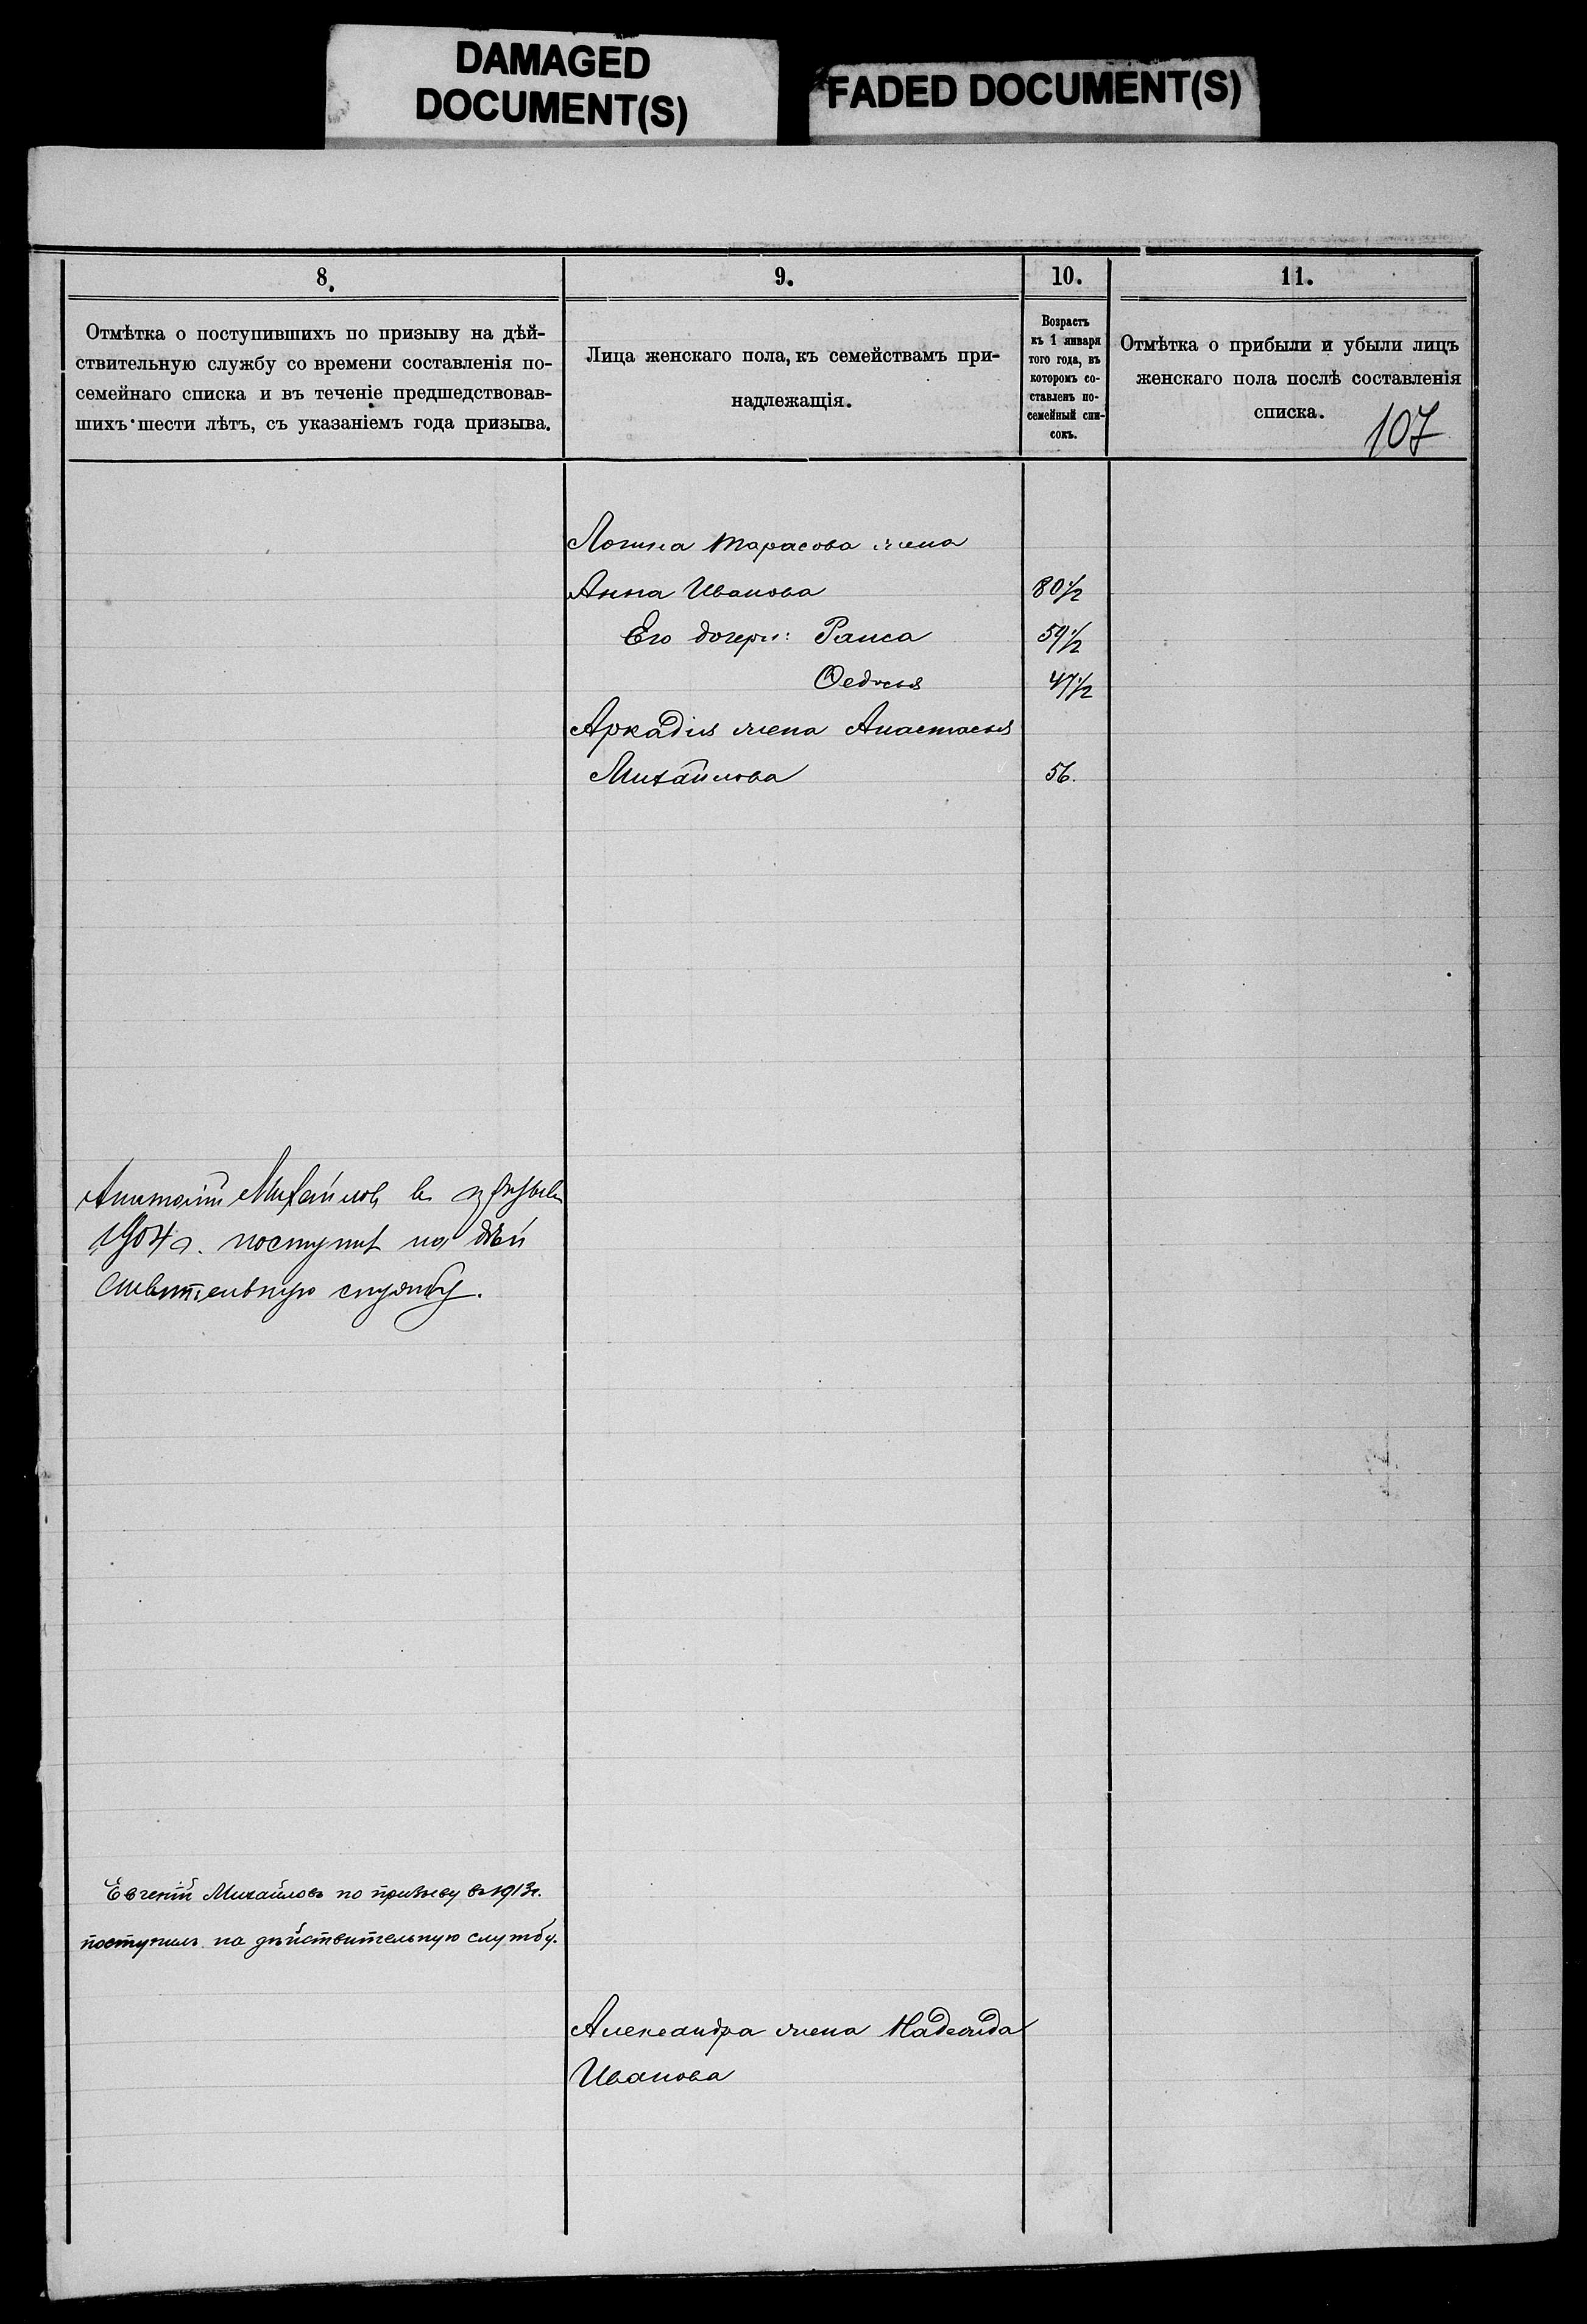 DAMAGED
DOCUMENT(S)
FADED DOCUMENT(S)
8.
9.
10.
11.
Отмѣтка о поступившихъ по призыву на дѣй-
ствительную службу со времени составленія по-
семейнаго списка и въ теченіе предшедствовав-
шихъ шести лѣтъ, съ указаніемъ года призыва.
Лица женскаго пола, къ семействамъ при-
надлежащія.
Возрастъ
къ 1 января
того года, въ
которомъ со-
ставленъ по-
семейный спи-
сокъ.
Отмѣтка о прибыли и убыли лицъ
женскаго пола послѣ составленія
списка.
107
Логина Тарасова жена
Анна Иванова 80 1/2
Его дочери: Раиса 59 1/2
Ѳедосья 47 1/2
Аркадія жена Анастасья
Михайлова 56.
Анатолій Михайловъ въ призывъ
1904 г. поступил на дѣй
ствительную службу.
Евгеній Михайловъ по призыву въ 1913 г.
поступилъ на дѣйствительную службу.
Александра жена Надежда
Иванова